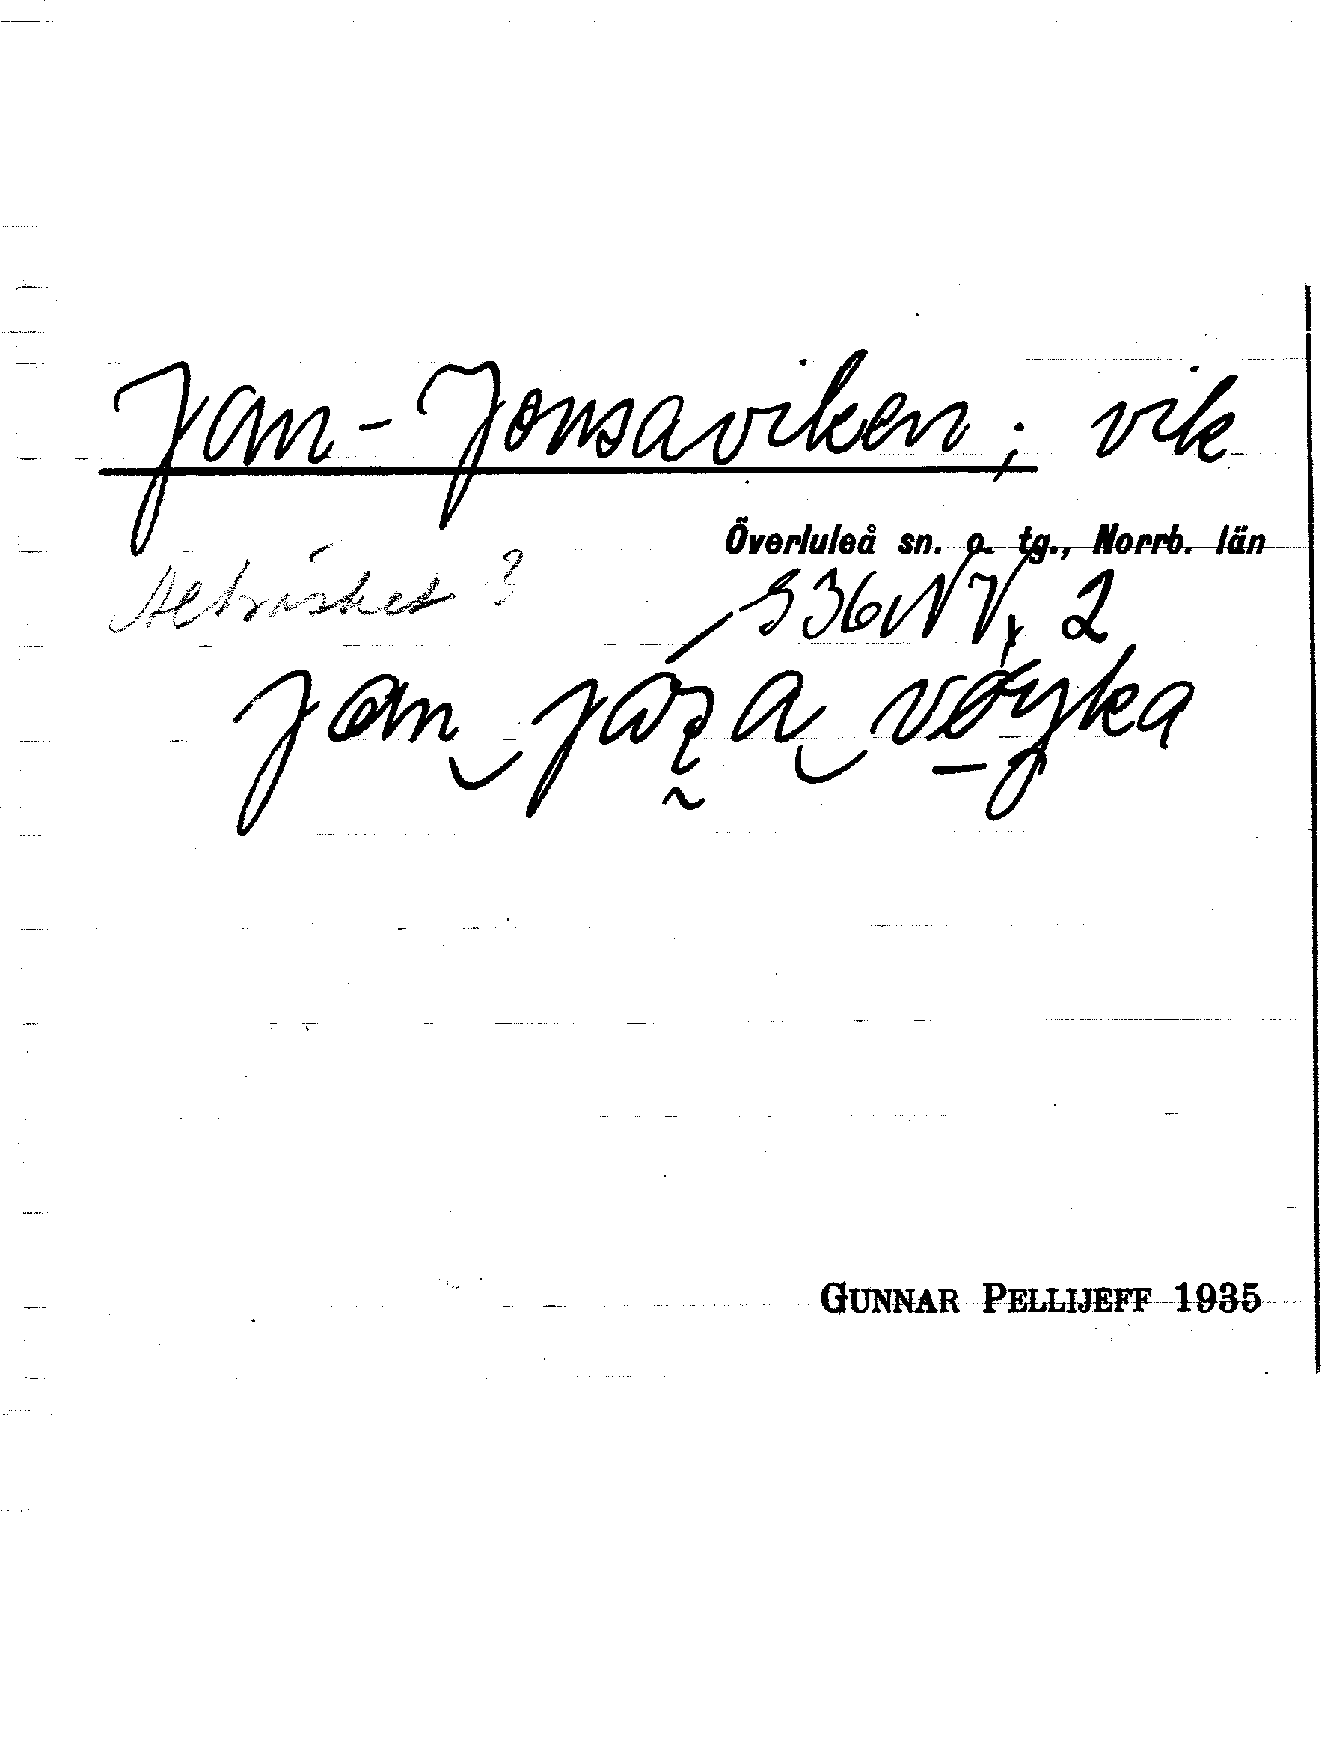 Jan-Jonsaviken; vik
Överluleå sn. o. tg., Norrb. län
Alträsket ?
S36NV, 2
GUNNAR PELLIJEFF 1935